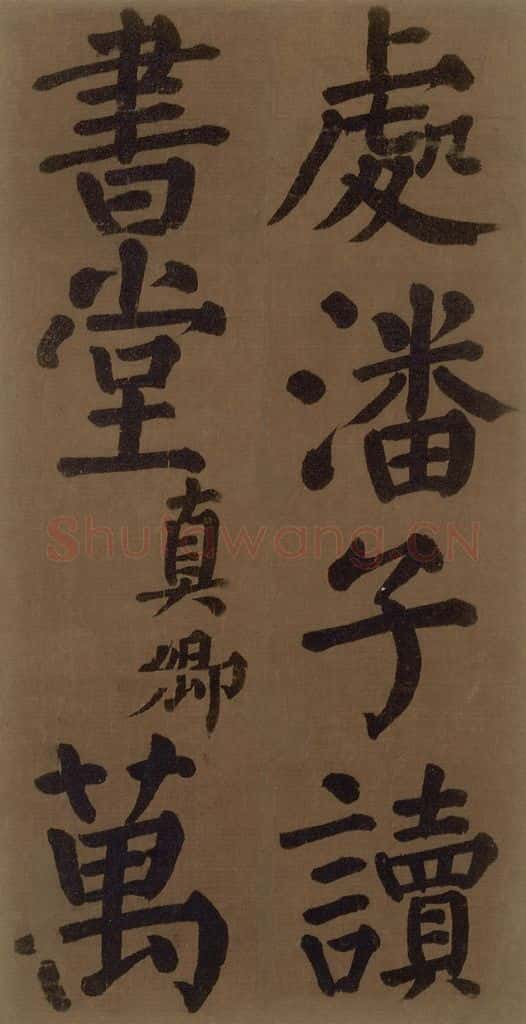 處潘子讀
書堂真卿萬
Shufawang.CN